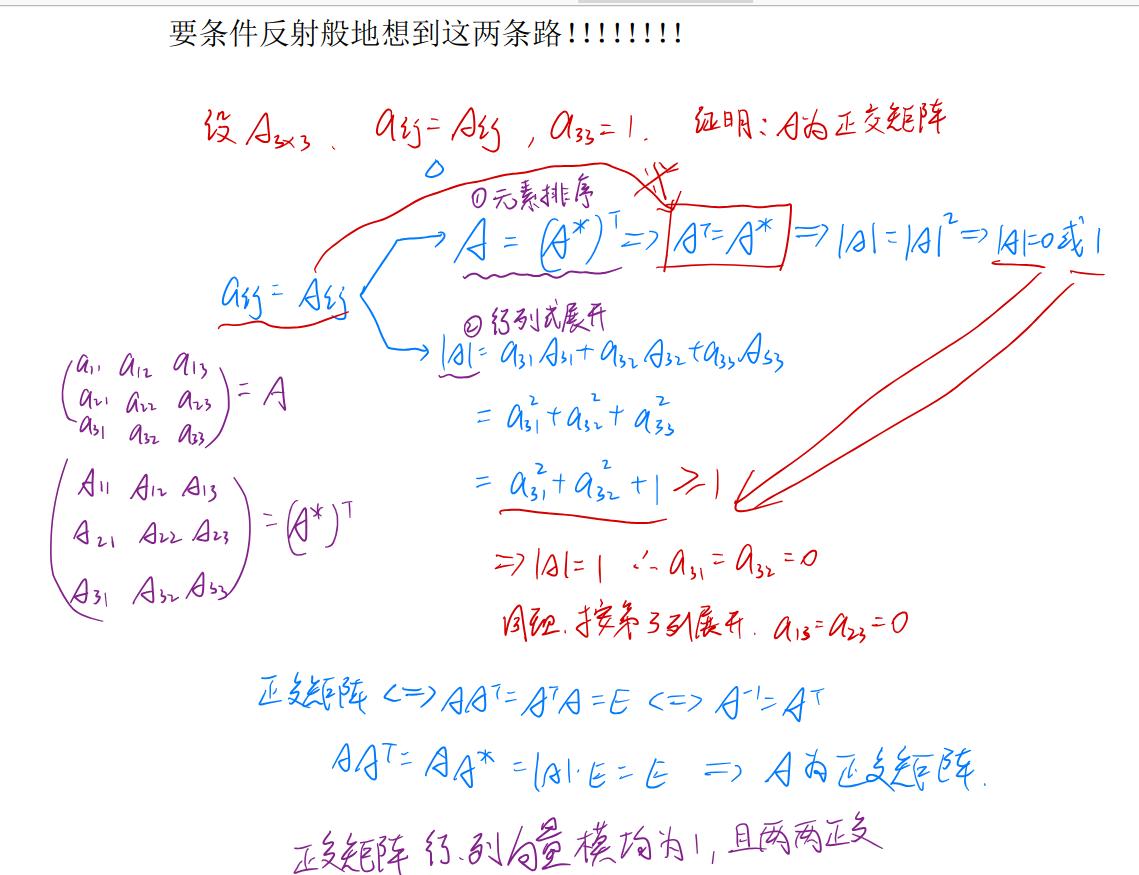 要条件反射般地想到这两条路!!!!!!!!
设 A₃ₓ₃、 aᵢⱼ = Aᵢⱼ , a₃₃ = 1. 证明: A为正交矩阵
①元素排序
aᵢⱼ = Aᵢⱼ
A = (A*)ᵀ => Aᵀ = A* => |A| = |A|² => |A|=0或1
②行列式展开
|A| = a₃₁A₃₁ + a₃₂A₃₂ + a₃₃A₃₃
= a₃₁² + a₃₂² + a₃₃²
= a₃₁² + a₃₂² + 1 ≥ 1
=> |A| = 1 ∴ a₃₁ = a₃₂ = 0
同理. 按第3列展开. a₁₃ = a₂₃ = 0
(a₁₁ a₁₂ a₁₃
a₂₁ a₂₂ a₂₃
a₃₁ a₃₂ a₃₃) = A
(A₁₁ A₁₂ A₁₃
A₂₁ A₂₂ A₂₃
A₃₁ A₃₂ A₃₃) = (A*)ᵀ
正交矩阵 <=> AAᵀ = AᵀA = E <=> A⁻¹ = Aᵀ
AAᵀ = AA* = |A|·E = E => A为正交矩阵.
正交矩阵 行.列向量模均为1, 且两两正交